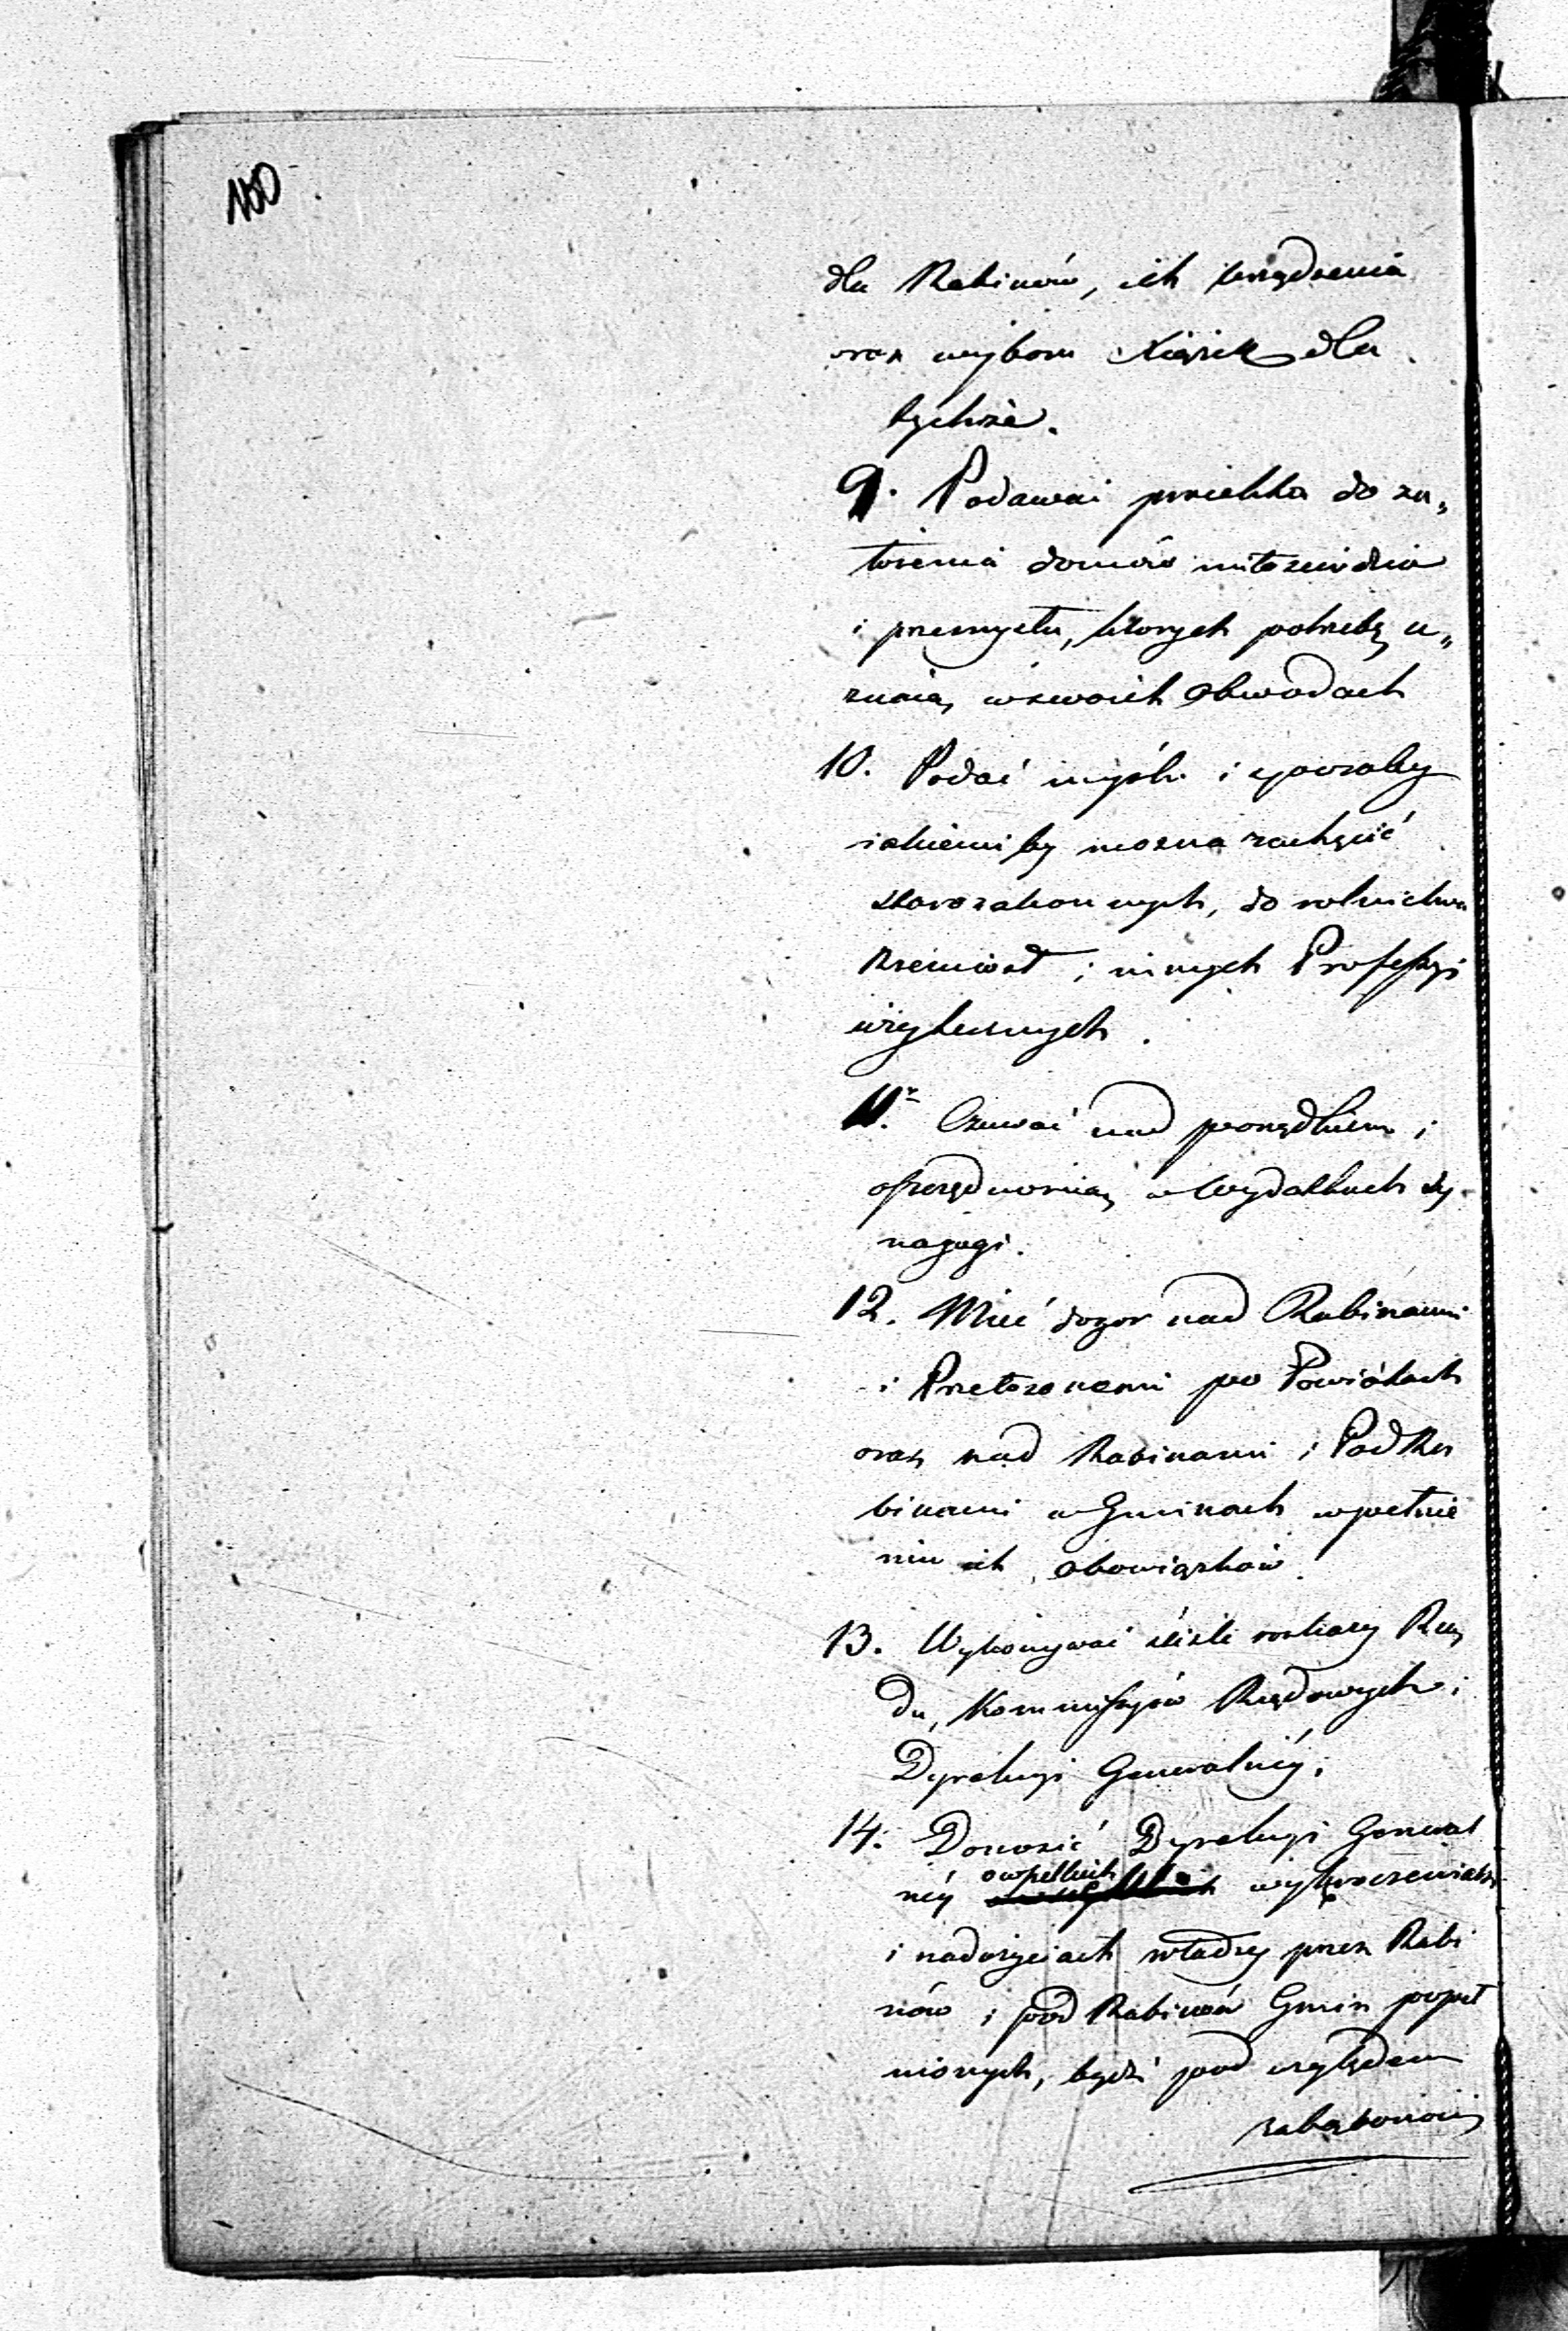 160
dla Rabinów, ich urządzenia
oraz wyboru Xiążek dla
tychże.
9. Podawać proiekta do za„
łożenia domów miłosierdzia
i przemysłu, których potrzebę u„
znaią w swoich Obwodach
10. Podać myśli i sposoby
iakiemi by można zachęcić
starozakonnych, do rolnictwa
rzemiosł i innych Professyi
użytecznych.
11. Czuwać nad porządkiem i
oszczędnością w wydatkach Sy„
nagogi.
12. Mieć dozor nad Rabinami
i Przełożonemi po Powiátach
oraz nad Rabinami i Pod Ra
binami w Gminach w pełnie
niu ich obowiązków.
13. Wykonywać ściśle rozkazy Rzą
du, Kommissyów Rządowych i
Dyrekcyi Generalnéy;
14. Donosić Dyrekcyi General
néy o wszelkich wykroczeniach
i nadużyciach władzy przez Rabi
nów i pod Rabinów Gmin popeł
nionych, bądź pod względem
zabobonów